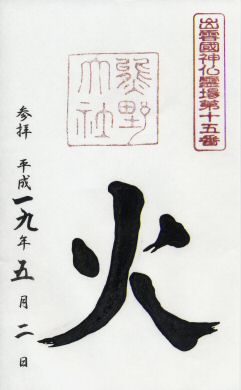 出雲國神仏霊場第十五番
熊野大社
火
参拝 平成一九年五月二日